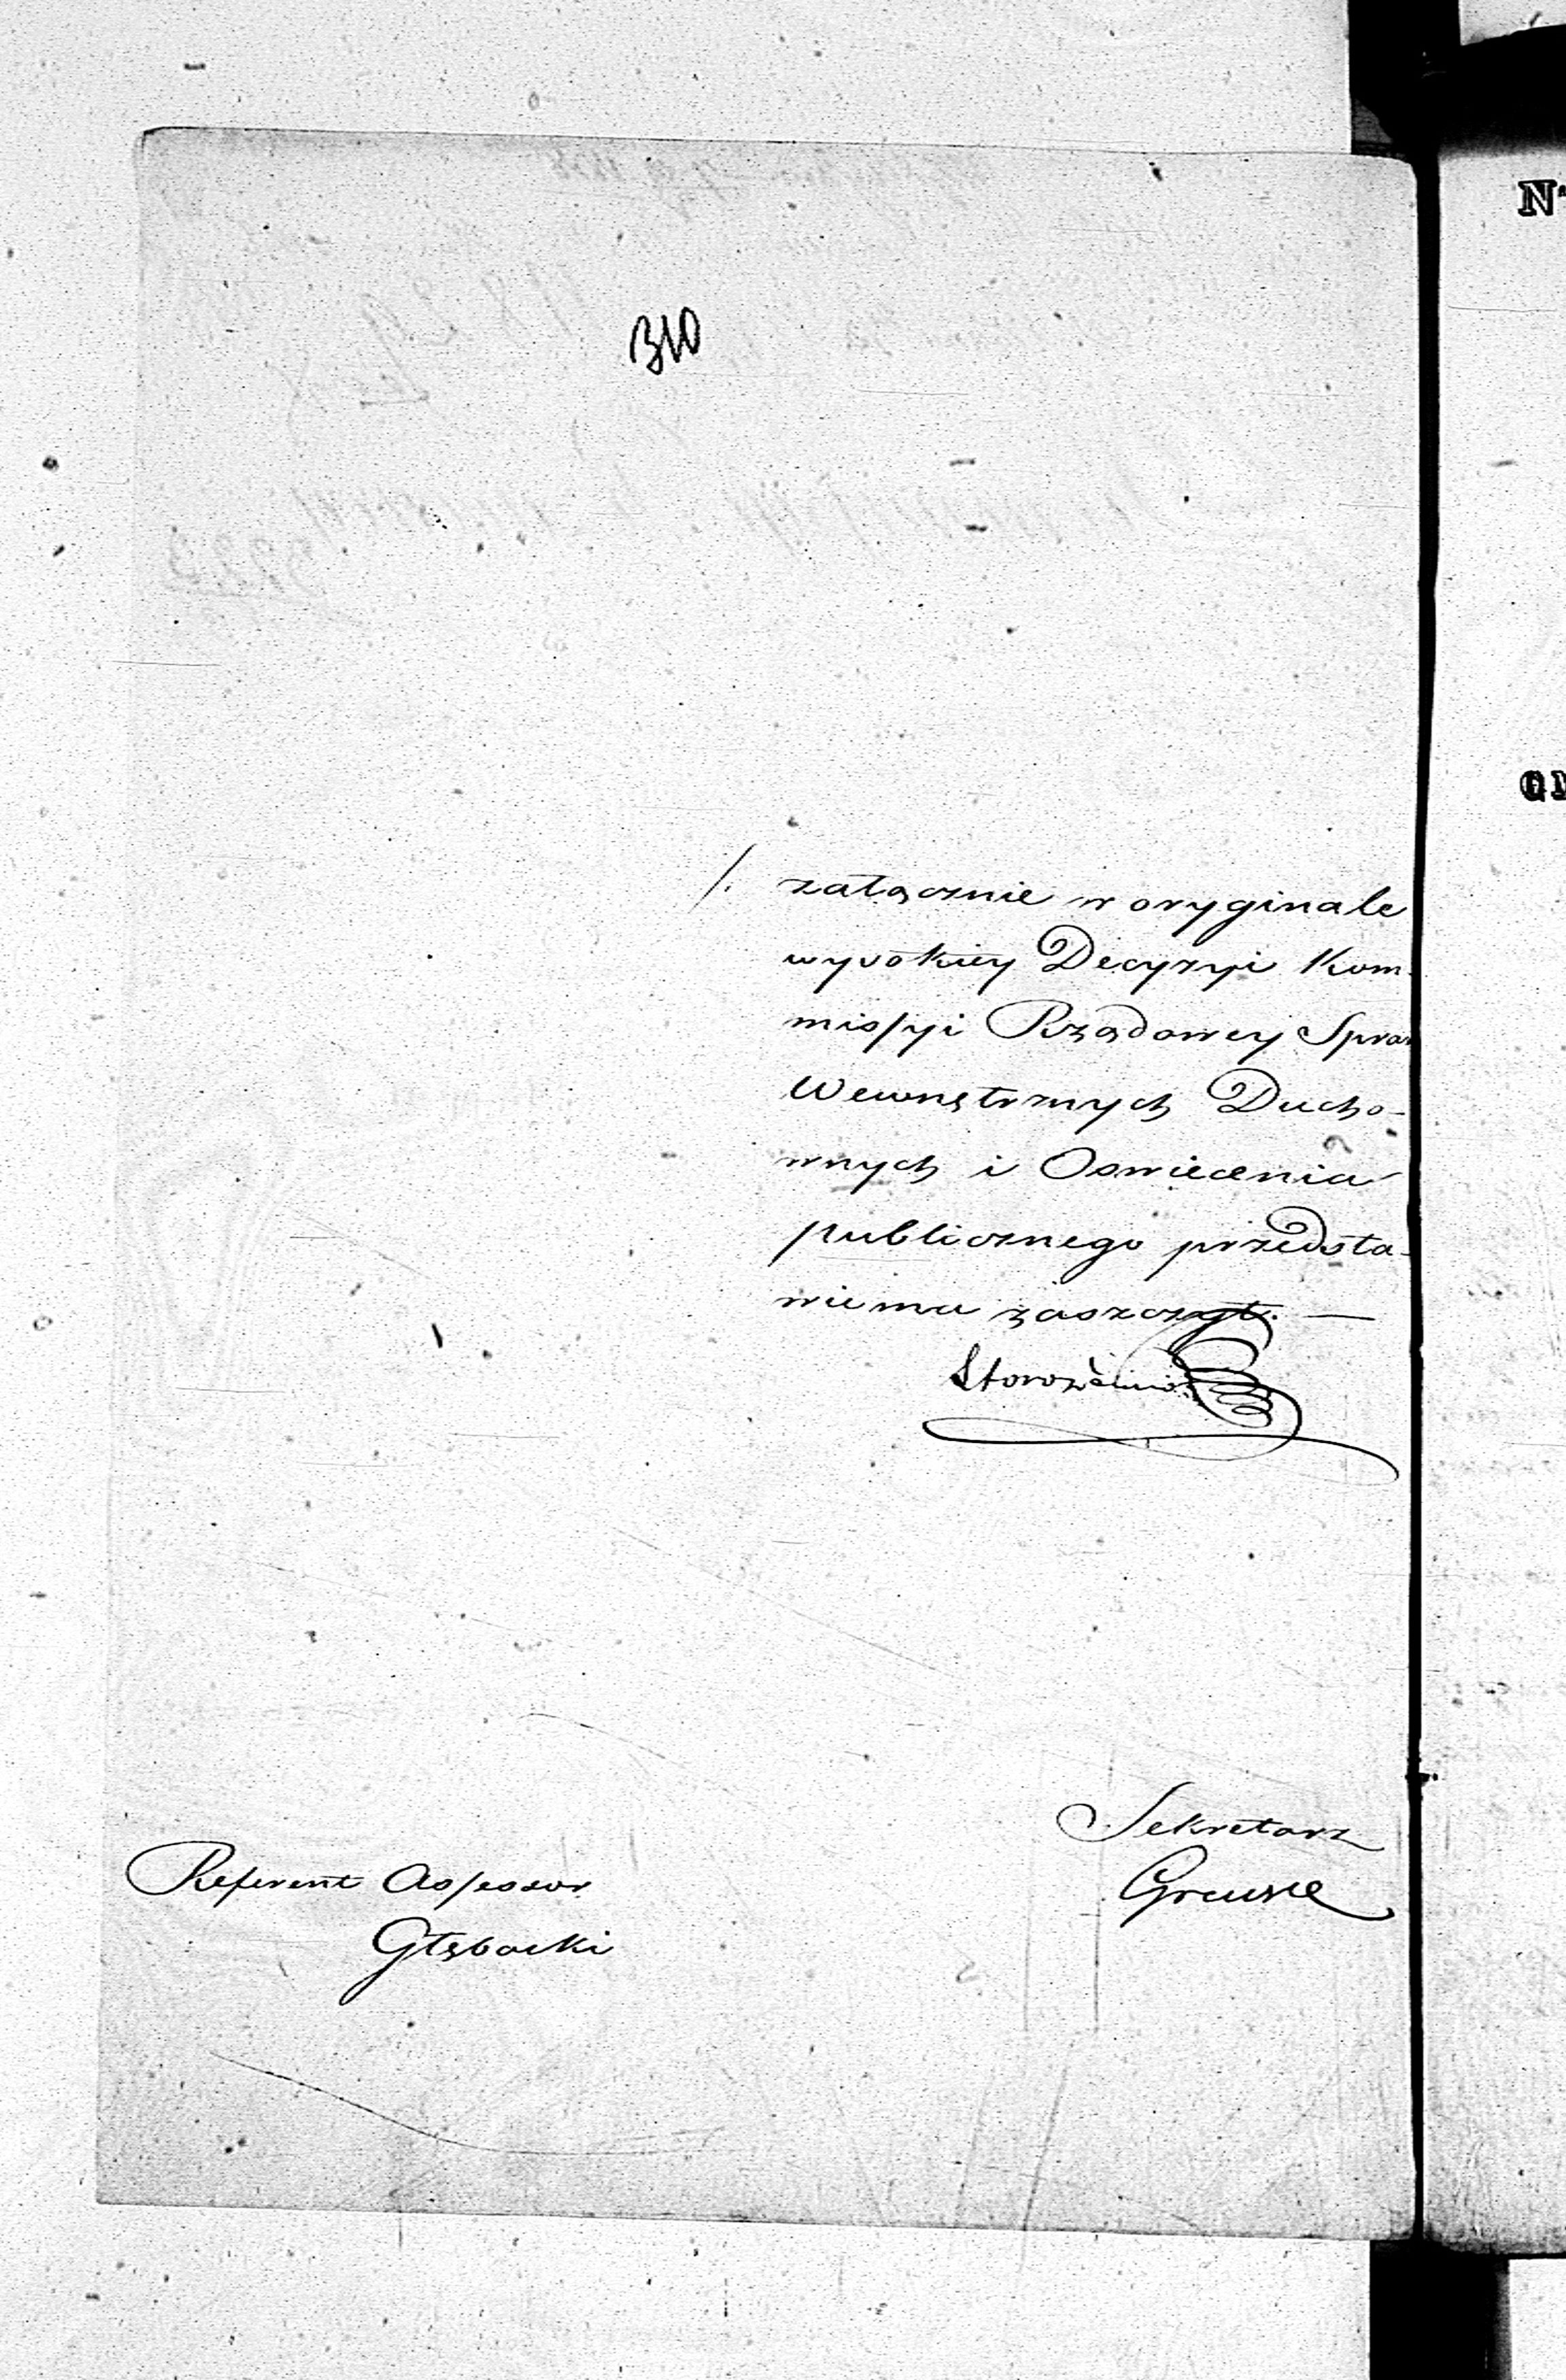 310
/. załącznie w oryginale
wysokiéy Decyzyi Kom-
missyi Rządowey Spraw
Wewnętrznych Ducho-
wnych i Oswiecenia
publicznego przedsta-
wienia zaszczyt. —
Referent Assessor
Głębocki
Sekretarz